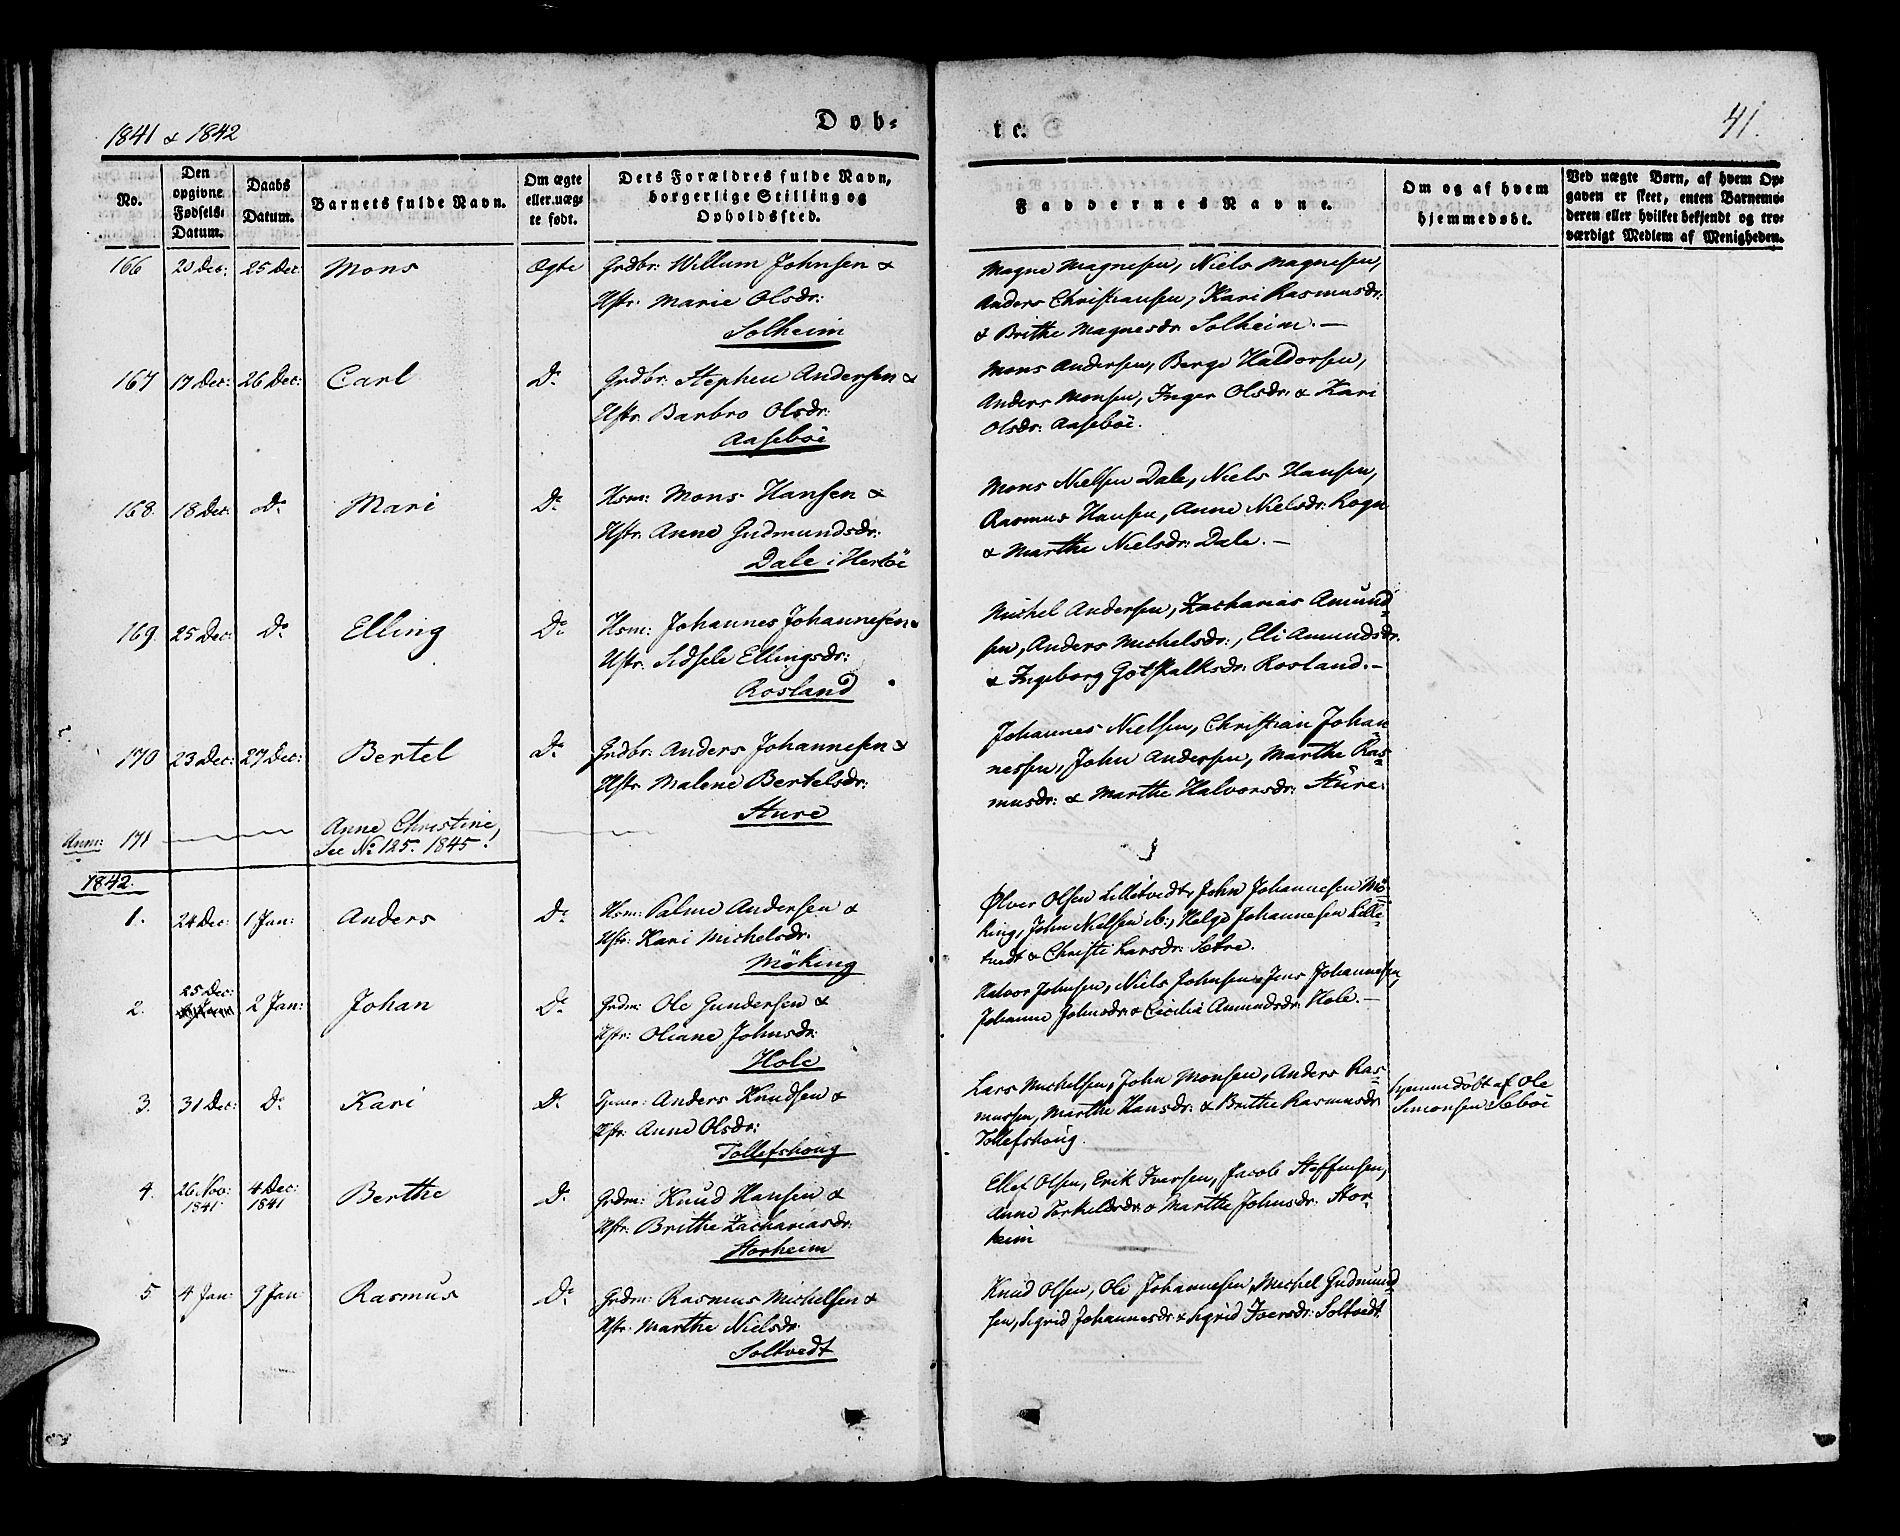 1841 & 1842
Døb-
te.
41.
No.
Den opgivne Fødsels-Datum.
Daabs Datum.
Barnets fulde Navn.
Om ægte eller uægte født.
Dets Forældres fulde Navn, borgerlige Stilling og Opholdssted.
Faddernes Navne.
Om og af hvem hjemmedøbt.
Ved uægte Børn, af hvem Opgaven er skeet, enten Barnemoderen eller hvilket bekjendt og troværdigt Medlem af Menigheden.
166 20 Dec: 25 Dec Mons Ægte Grdbr: Willum Johnsen &
Hstr: Marie Olsdr:
Solheim
Magne Magnesen, Niels Magnesen,
Anders Christiansen, Kari Rasmusdr:
& Brithe Magnesdr Solheim. —
167 17 Dec: 26 Dec: Carl Do Grdbr: Stephen Andersen &
Hstr: Barbro Olsdr:
Aasebøe
Mons Andersen, Berge Haldorsen,
Anders Monsen, Inger Olsdr: & Kari
Olsdr: Aaseböe.
168. 18 Dec: Do Mari Do Hsm: Mons Hansen &
Hstr: Anne Gudmundsdr:
Dale i Herløe
Mons Nielsen Dale, Niels Hansen,
Rasmus Hansen, Anne Nielsdr: Rogn
& Marthe Nielsdr: Dale. —
169. 25 Dec: Do Elling Do Hsm: Johannes Johannesen &
Hstr: Sidsele Ellingsdr:
Rosland
Michel Andersen, Zacharias Amund-
sen, Anders Michelsdr:, Eli Amundsdr.
& Ingeborg Gotskalksdr: Rosland. —
170 23 Dec: 27 Dec: Bertel Do Grdbr: Anders Johannesen &
Hstr: Malene Bertelsdr:
Sture
Johannes Nielsen, Christian Johan
nessen, John Andersen, Marthe Ras-
musdr: & Marthe Halvorsdr: Sture.
Anm: 171 Anne Christine,
See No 125. 1845!
1842.
1. 24 Dec: 1 Jan: Anders Do Hsm: Salme Andersen &
Hstr: Kari Michelsdr.
Möking
Ølver Olsen Lilletvedt, John Johannesen Mö-
king, John Nielsen ib:, Helge Johannesen Lille-
tvedt & Christi Larsdr: Sætre.
2. 25 Dec: 2 Jan: Johan Do Grdm: Ole Gundersen &
Hstr: Oliane Johnsdr:
Hole
Halvor Johnsen, Niels Johnsen, Jens Johannesen,
Johanne Johnsdr: & Cicilie Amundsdr: Hole. —
3. 31 Dec: Do Kari Do Anders Knudsen &
Hstr: Anne Olsdr:
Tollefshoug
Lars Michelsen, John Monsen, Anders Ras-
mussen, Marthe Hansdr: & Brithe Rasmusdr
Tollefshoug.
Hjemmedöbt af Ole
Simonsen Sæböe
4. 26 Nov: 1841. 4 Dec: 1841 Berthe Do Grdm: Knud Hansen &
Hstr: Brithe Zachariasdr:
Storheim
Ellef Olsen, Erik Iversen, Jacob Steffensen,
Anne Torkeldsdr: & Marthe Johnsdr: Stor-
heim
5 4 Jan: 9 Jan Rasmus Do Grdm: Rasmus Michelsen &
Hstr: Marthe Nielsdr
Soltvedt
Knud Olsen, Ole Johannesen, Michel Gudmund-
sen, Sigrid Johannesdr & Sigrid Iversdr: Soltvedt.